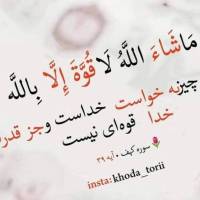 مَاشَاءَ اللَّهُ لَا قُوَّةَ إِلَّا بِاللَّهِ
چیزبه خواست خداست وجز قدر
خدا قوه‌ای نیست
سوره کهف • آیه ۳۹
insta: khoda_torii